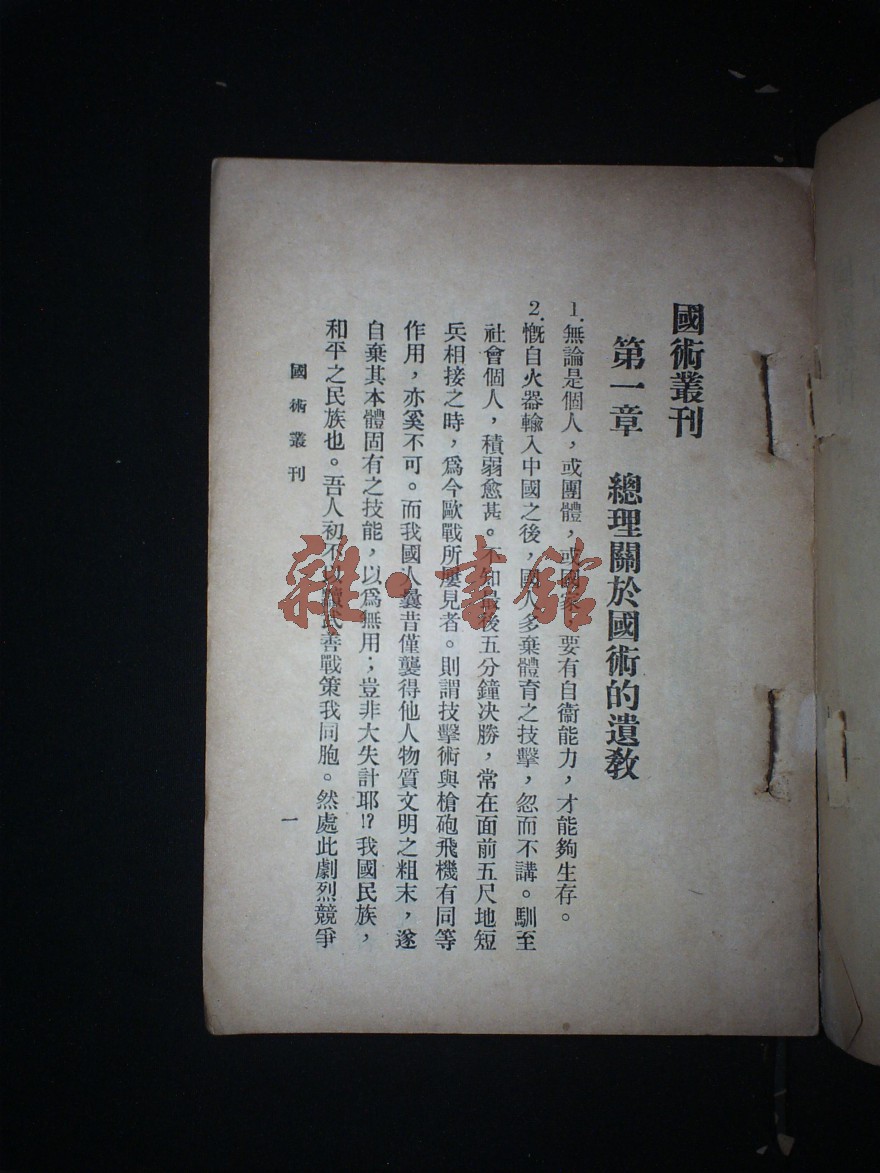 國術叢刊
第一章　總理關於國術的遺教
1.無論是個人，或團體，或國家，要有自衞能力，才能夠生存。
2.慨自火器輸入中國之後，國人多棄體育之技擊，忽而不講。馴至
社會個人，積弱愈甚。不知最後五分鐘决勝，常在面前五尺地短
兵相接之時，爲今歐戰所屢見者。則謂技擊術與槍砲飛機有同等
作用，亦奚不可。而我國人曩昔僅襲得他人物質文明之粗末，遂
自棄其本體固有之技能，以爲無用；豈非大失計耶!?我國民族，
和平之民族也。吾人初不以黷武善戰策我同胞。然處此劇烈競爭
國術叢刊
一
雜·書館